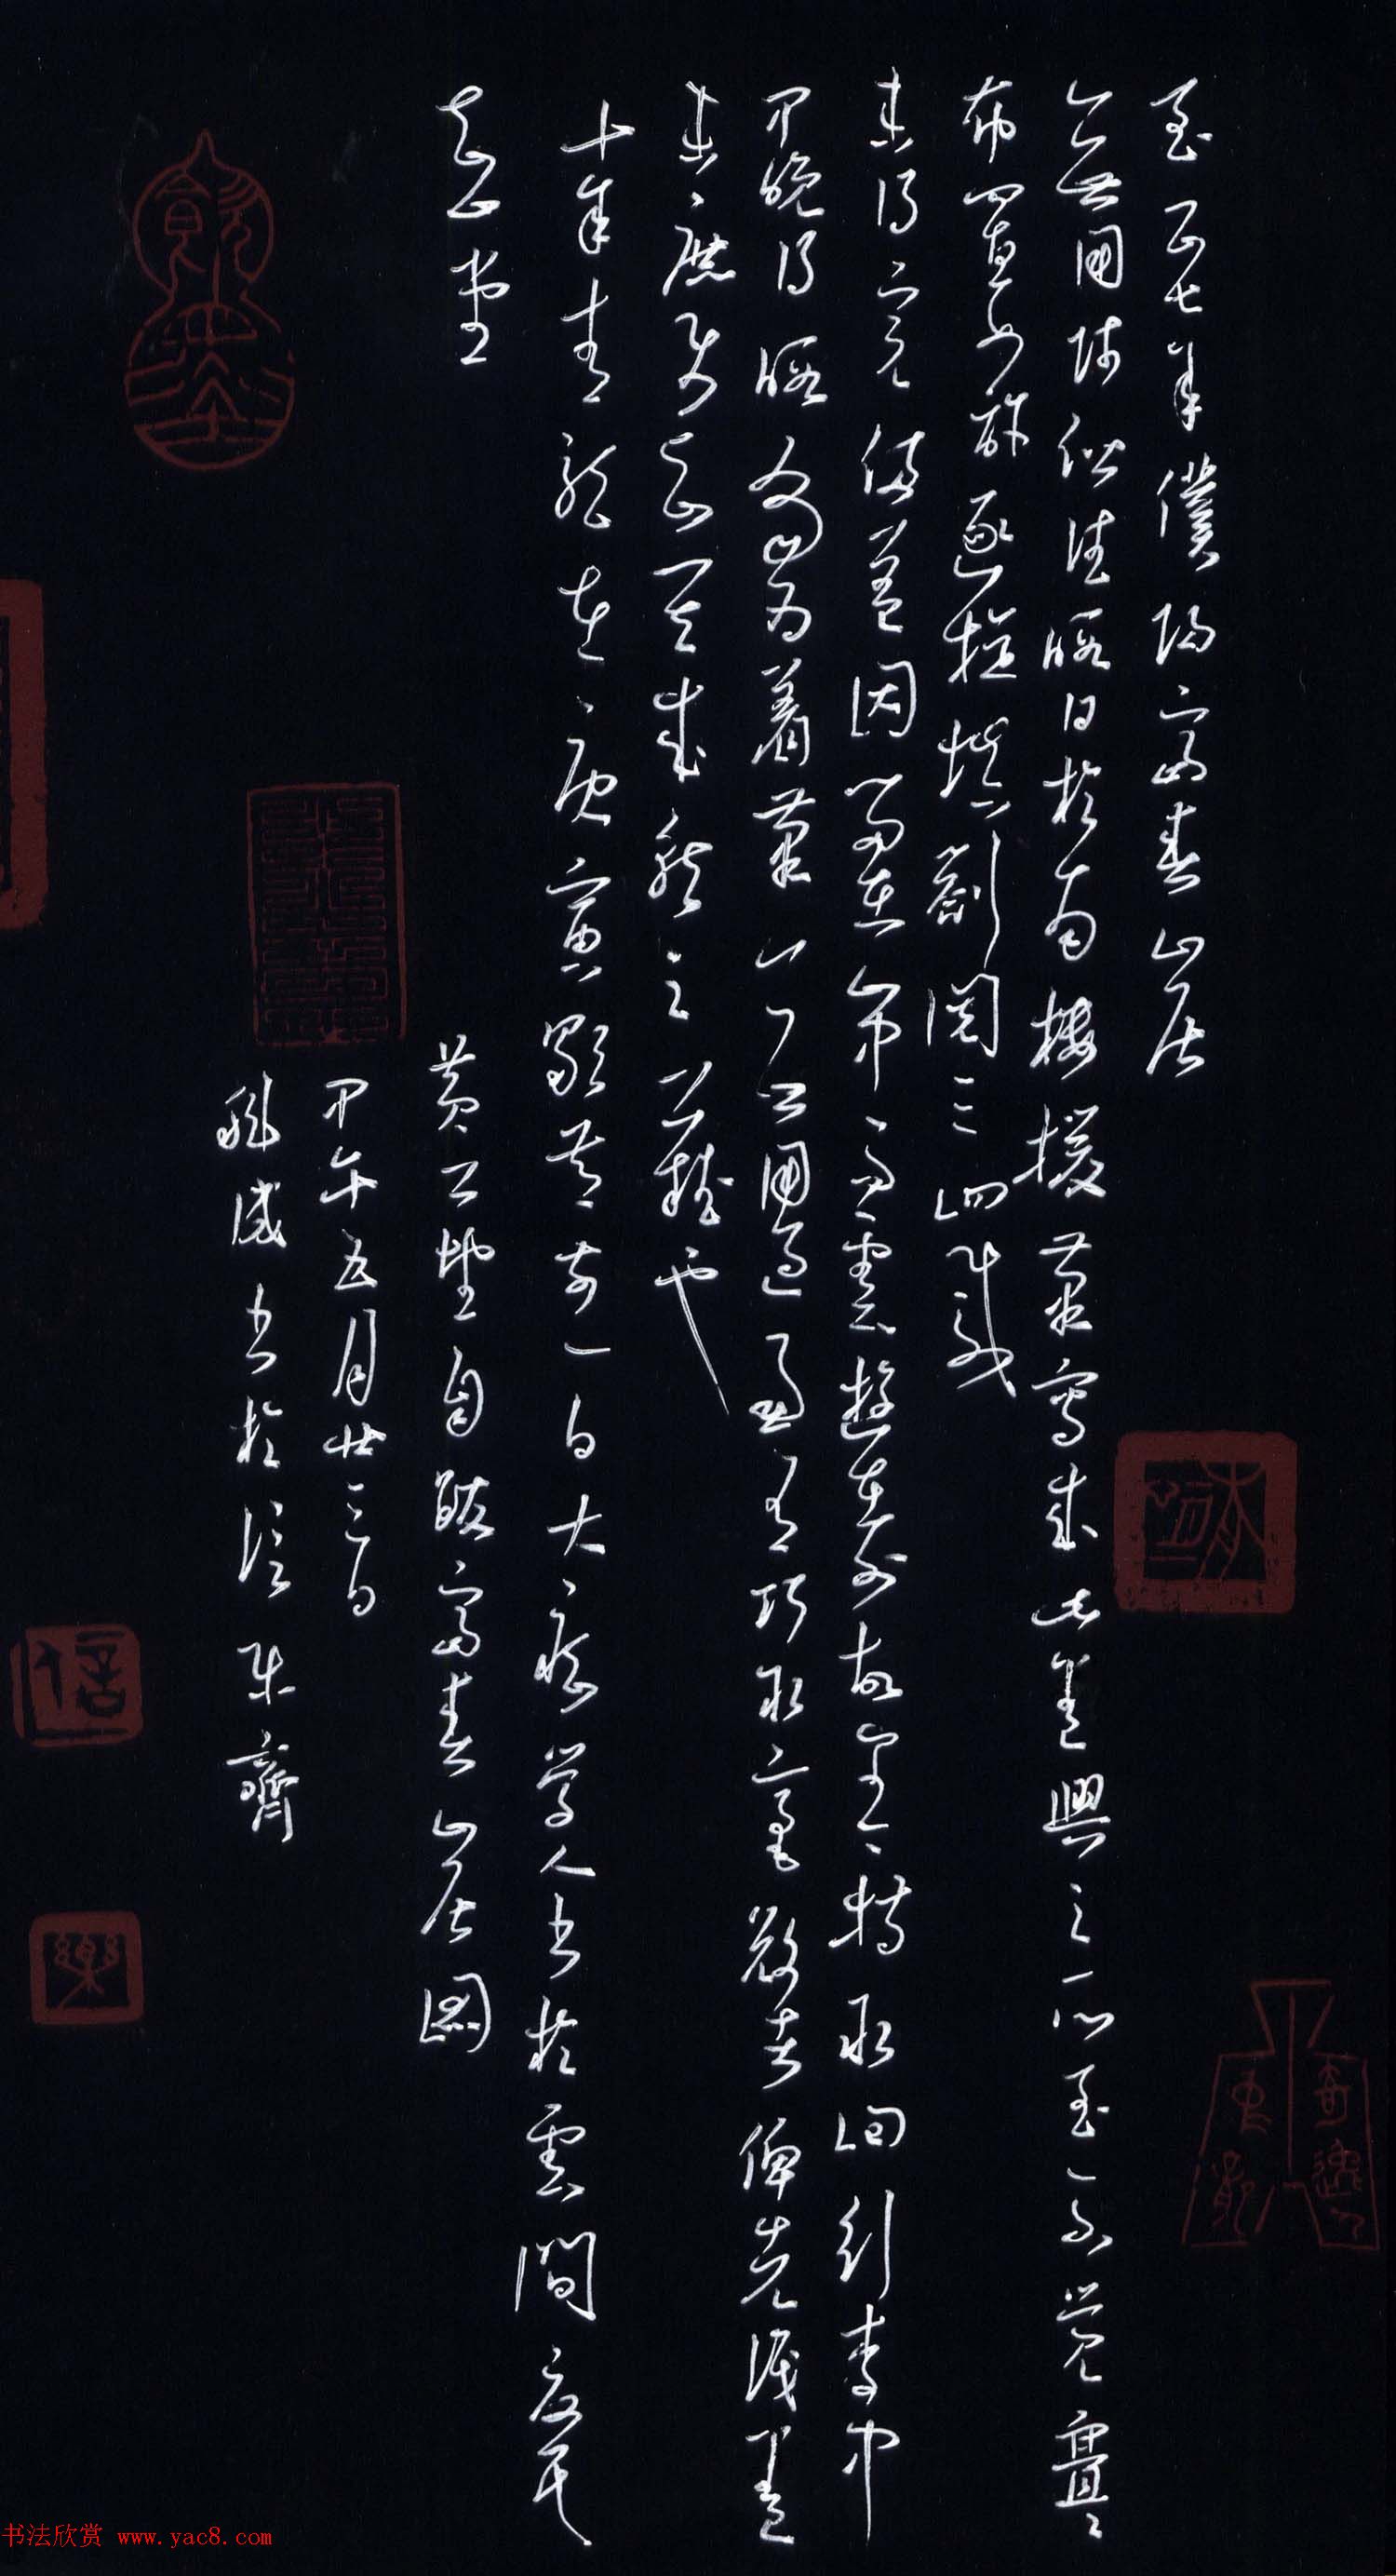 至正七年僕歸富春山居
無用師偕往暇日於南樓援筆寫成此卷興之所至不覺亹亹
布置如許逐旋填劄閱三四載
未得完備蓋因留在山中而雲遊在外故爾今特取回行李中
早晚得暇當為着筆無用過慮有巧取豪敚者俾先識卷
末庶使知其成就之難也
十年青龍在庚寅歜節前一日大癡學人書於雲間夏氏
知止堂
黃公望自跋富春山居圖
甲午五月廿三日
書於信樂齋
信
樂
书法欣赏 www.yac8.com